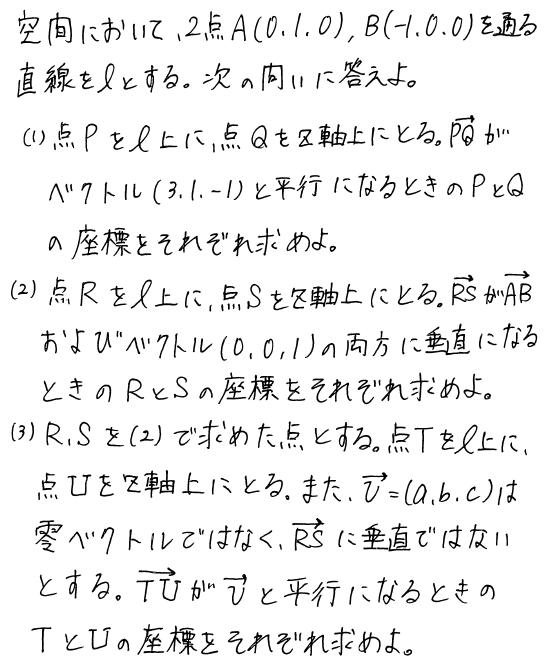 空間において、2点A(0.1.0), B(-1.0.0)を通る
直線をlとする。次の問いに答えよ。
(1) 点Pをl上に、点Qをz軸上にとる。PQが
ベクトル(3.1.-1)と平行になるときのPとQ
の座標をそれぞれ求めよ。
(2) 点Rをl上に、点Sをz軸上にとる。RSがAB
およびベクトル(0,0,1)の両方に垂直になる
ときのRとSの座標をそれぞれ求めよ。
(3) R,Sを(2)で求めた点とする。点Tをl上に、
点Uをz軸上にとる。また、v=(a,b,c)は
零ベクトルではなく、RSに垂直ではない
とする。TUがvと平行になるときの
TとUの座標をそれぞれ求めよ。